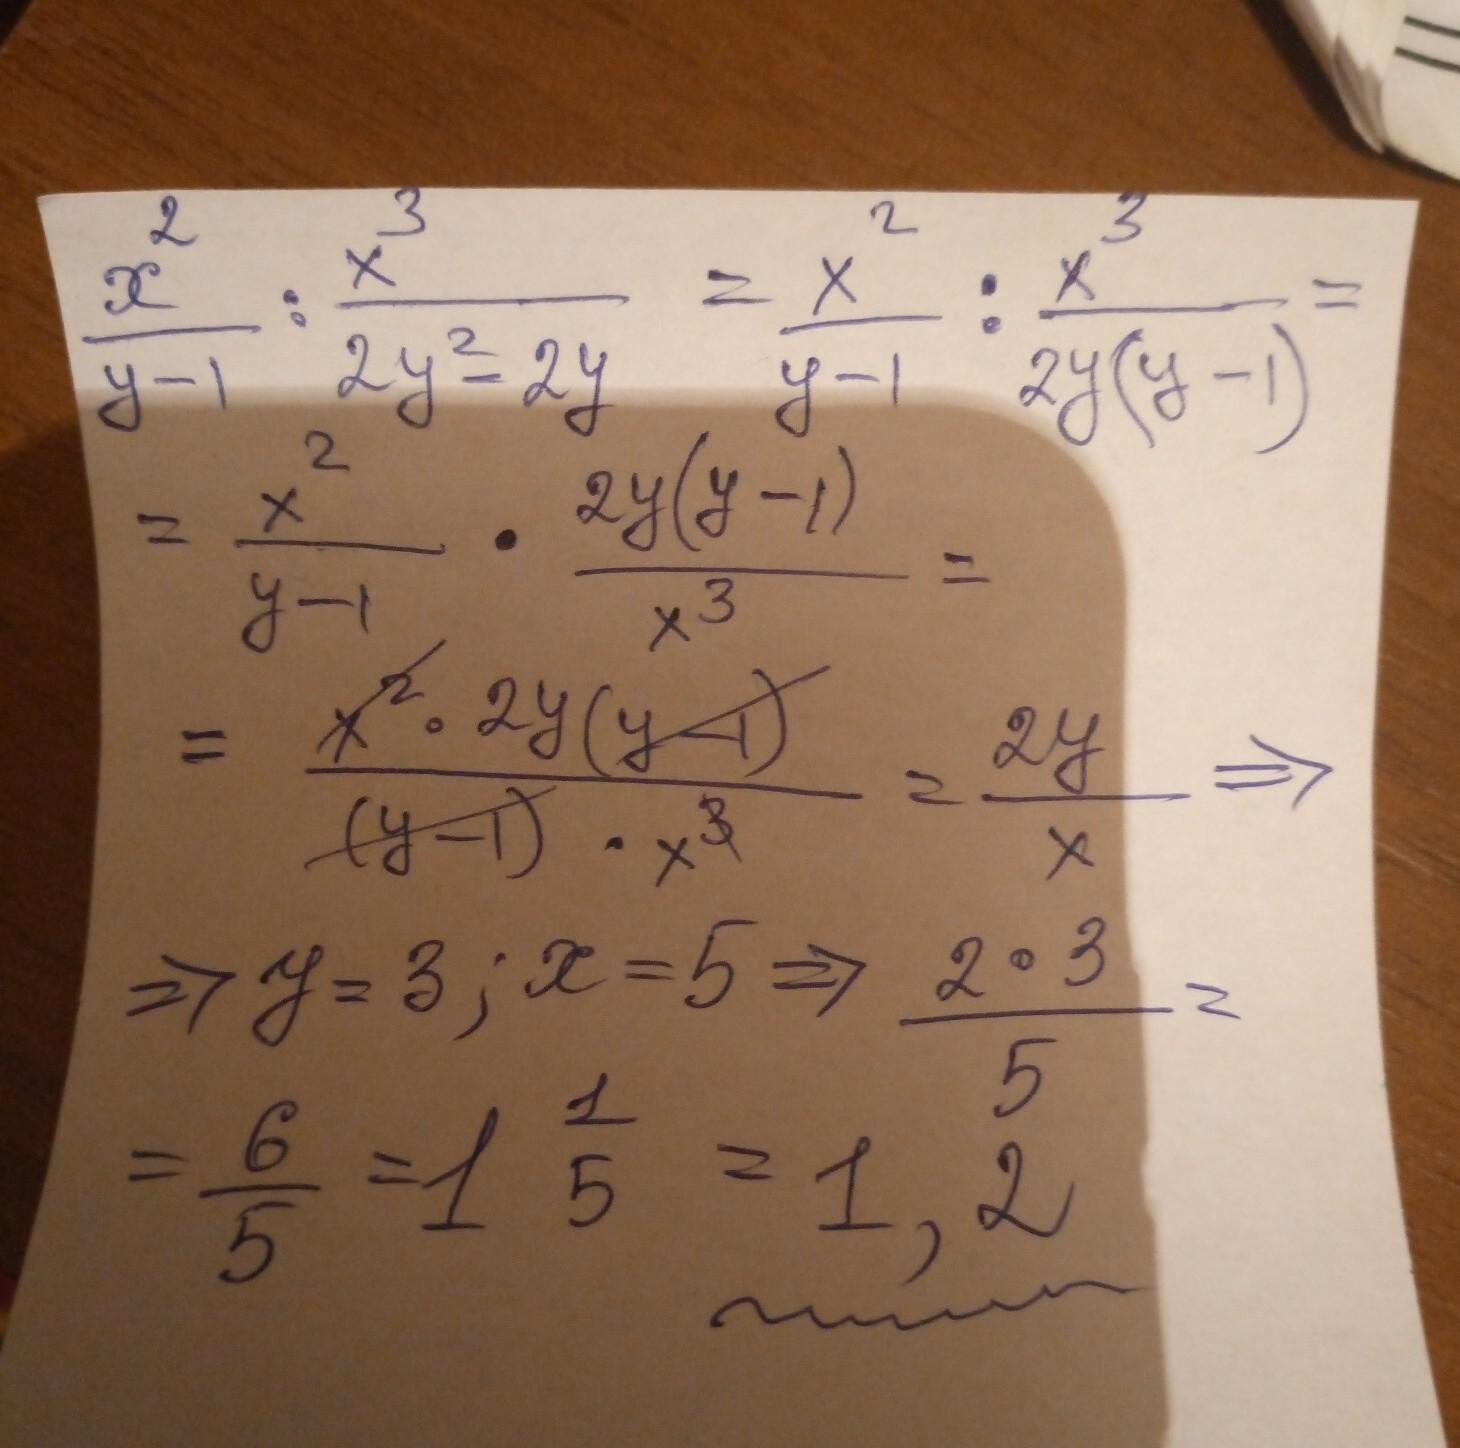 x²/(y-1) : x³/(2y²-2y) = x²/(y-1) : x³/(2y(y-1)) =
= x²/(y-1) · 2y(y-1)/x³ =
= (x² · 2y(y-1))/((y-1) · x³) = 2y/x ⇒
⇒ y = 3; x = 5 ⇒ (2·3)/5 =
= 6/5 = 1 1/5 = 1,2